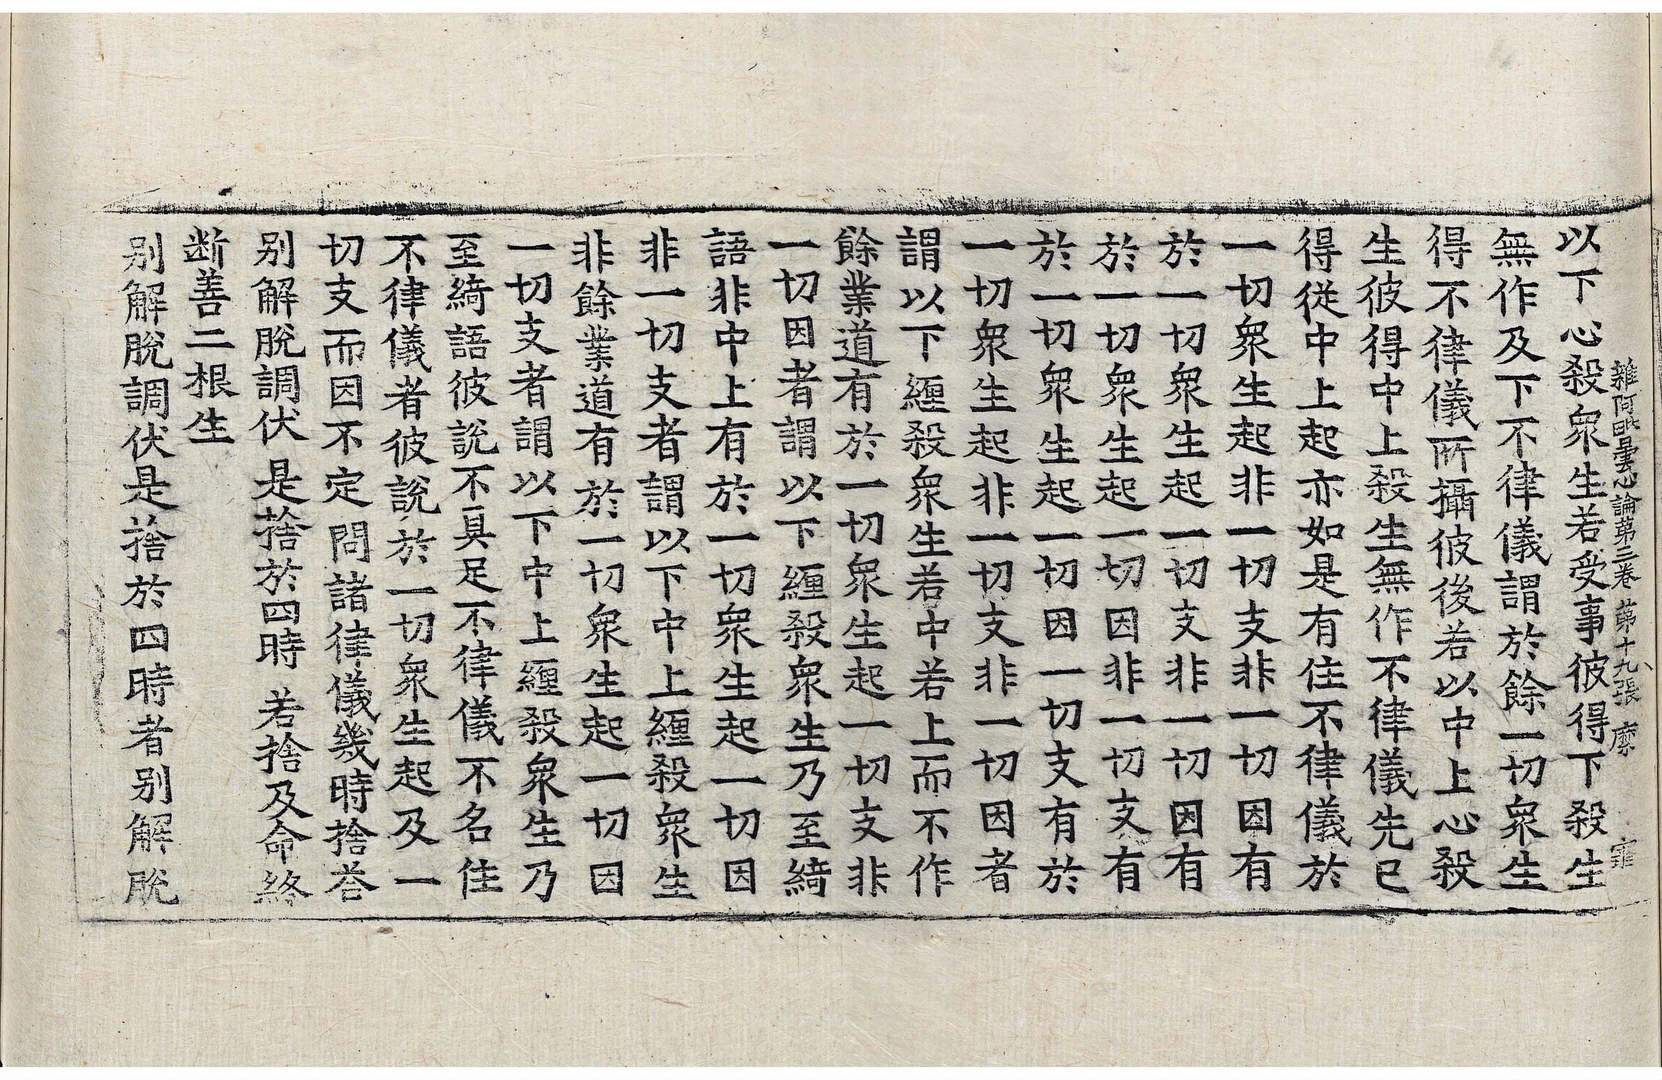 雜阿毗曇心論第三卷 第十九張 縻
以下心殺衆生若受事彼得下殺生
無作及下不律儀謂於餘一切衆生
得不律儀所攝彼後若以中上心殺
生彼得中上殺生無作不律儀先已
得從中上起亦如是有住不律儀於
一切衆生起非一切支非一切因有
於一切衆生起一切支非一切因有
於一切衆生起一切因非一切支有
於一切衆生起一切因一切支有於
一切衆生起非一切支非一切因者
謂以下纏殺衆生若中若上而不作
餘業道有於一切衆生起一切支非
一切因者謂以下纏殺衆生乃至綺
語非中上有於一切衆生起一切因
非一切支者謂以下中上纏殺衆生
非餘業道有於一切衆生起一切因
一切支者謂以下中上纏殺衆生乃
至綺語彼說不具足不律儀不名住
不律儀者彼說於一切衆生起及一
切支而因不定問諸律儀幾時捨荅
別解脫調伏 是捨於四時 若捨及命終
断善二根生
別解脫調伏是捨於四時者別解脫